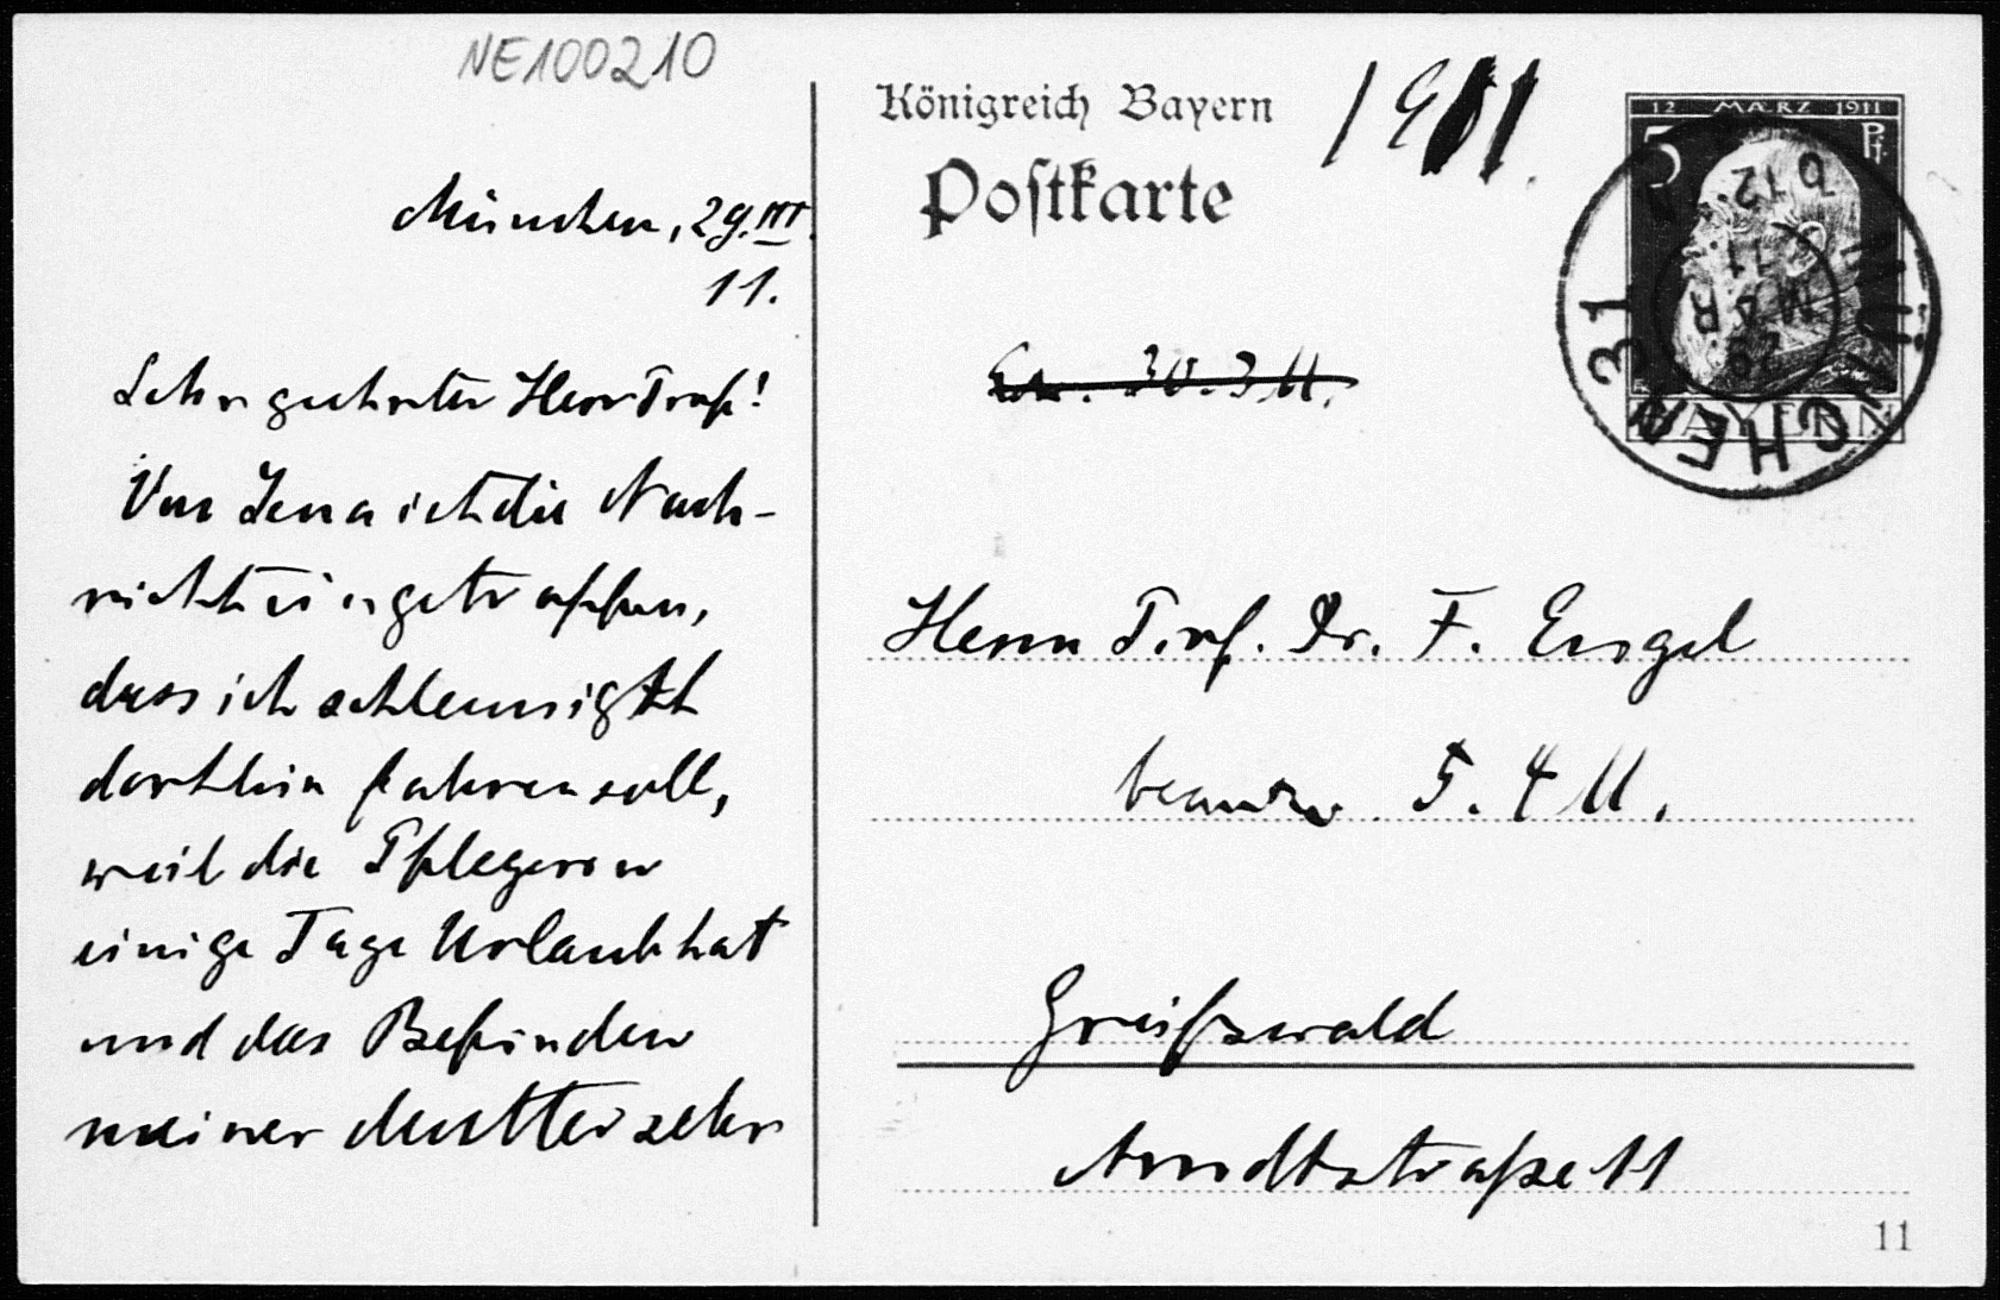 NE100210
München, 29.III.
11.
Sehr geehrter Herr Prof!
Von Jena ist die Nach-
richt eingetroffen,
dass ich schleunigst
dorthin fahren soll,
weil die Pflegerin
einige Tage Urlaub hat
und das Befinden
meiner Mutter sehr
Königreich Bayern
Postkarte
1911
12 MÆRZ 1911
5 Pf.
BAYERN
MÜNCHEN 31
29
MAR
11
12
30.3.11.
Herrn Prof. Dr. F. Engel
beantw. 5. 4 11.
Greifswald
Arndtstraße 11
11